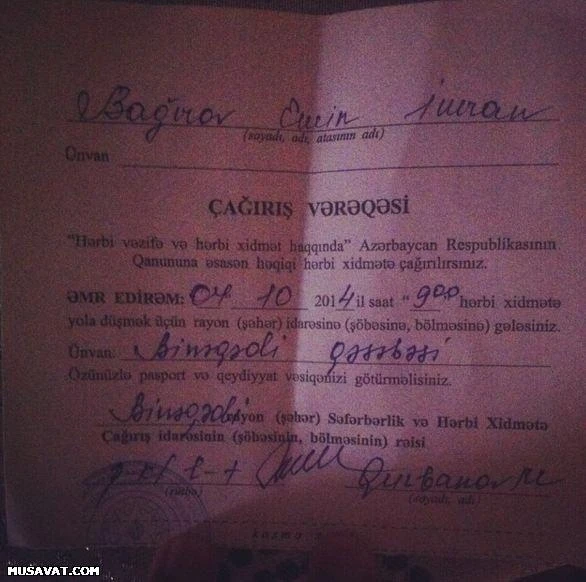 Bağırov Emin İmran
(soyadı, adı, atasının adı)
Ünvan
ÇAĞIRIŞ VƏRƏQƏSİ
"Hərbi vəzifə və hərbi xidmət haqqında" Azərbaycan Respublikasının
Qanununa əsasən həqiqi hərbi xidmətə çağırılırsınız.
ƏMR EDİRƏM: 04 10 2014 il saat "900 hərbi xidmətə
yola düşmək üçün rayon (şəhər) idarəsinə (şöbəsinə, bölməsinə) gələsiniz.
Ünvan: Binəqədi qəsəbəsi
Özünüzlə pasport və qeydiyyat vəsiqənizi götürməlisiniz.
Binəqədi rayon (şəhər) Səfərbərlik və Hərbi Xidmətə
Çağırış idarəsinin (şöbəsinin, bölməsinin) rəisi
Qurbanov
(rütbə) (soyadı, adı)
MUSAVAT.COM